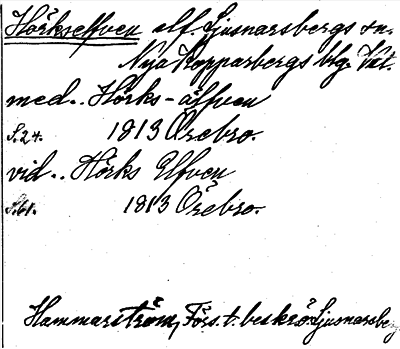 Hörkselfven elf. Ljusnarsbergs sn.
Nya Kopparbergs blg. Väst.
med.. Hörks-älfven
S.24. 1813 Örebro.
vid.. Hörks Elfven
S.61. 1813 Örebro.
Hammarström, Förs. t. beskr. ö. Ljusnarsberg